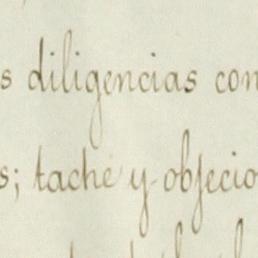 s diligencias con
s; tache y objecio